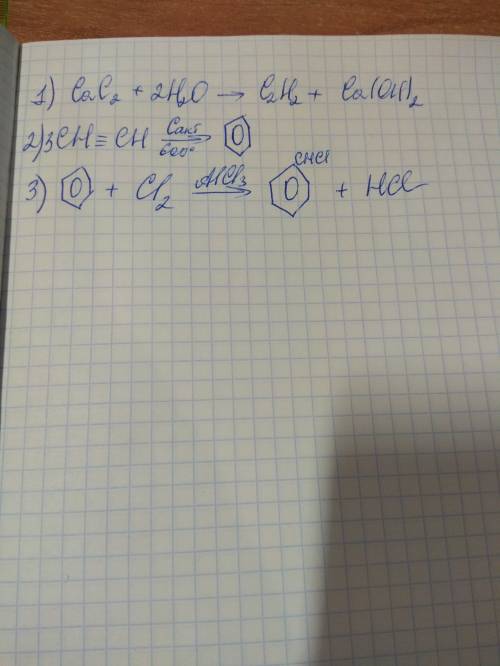 1) CaC₂ + 2H₂O → C₂H₂ + Ca(OH)₂
2) 3CH ≡ CH Cакт 600° →
3) + Cl₂ AlCl₃ → CHCl + HCl